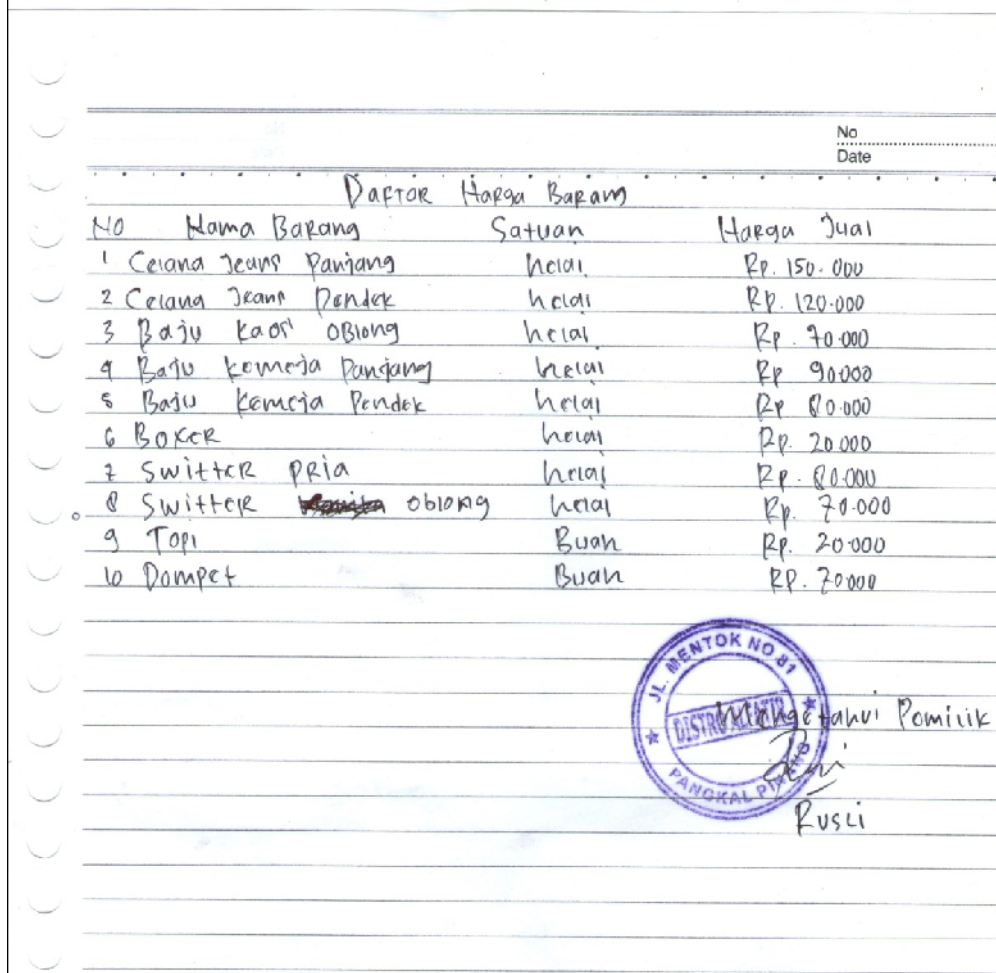 No
Date
Daftar Harga Barang
No Nama Barang Satuan Harga Jual
1 Celana Jeans Panjang helai Rp. 150.000
2 Celana Jeans Pendek helai Rp. 120.000
3 Baju kaos oblong helai Rp. 70.000
4 Baju kemeja Panjang helai Rp 90000
5 Baju kemeja Pendek helai Rp 80.000
6 Boxer helai Rp. 20.000
7 Switter pria helai Rp. 80.000
8 Switter oblong helai Rp. 70.000
9 Topi Buah Rp. 20.000
10 Dompet Buah Rp. 70000
JL. MENTOK NO 81
DISTRO
PANGKAL PINANG
Mengetahui Pemilik
Rusli